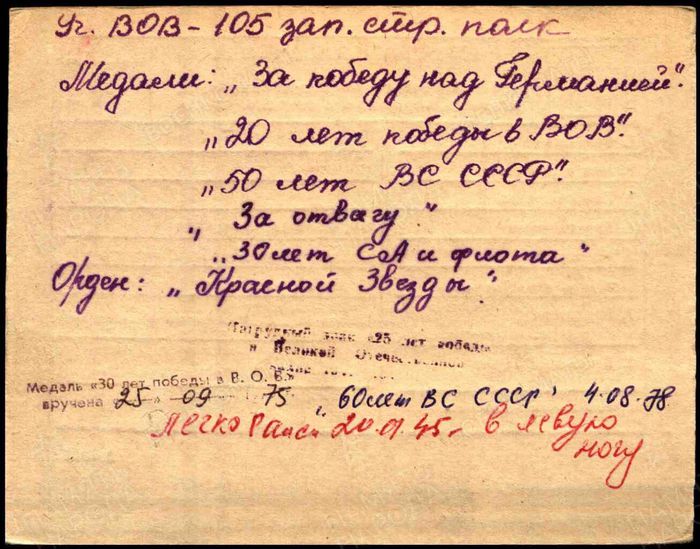 Уч. ВОВ - 105 зап. стр. полк
Медали: „За победу над Германией".
„20 лет победы в ВОВ".
„50 лет ВС СССР".
„За отвагу"
„30 лет СА и флота"
Орден: „Красной Звезды"
Нагрудный знак «25 лет победы
в Великой Отечественной
Медаль «30 лет победы в В. О. В.»
вручена 25 » 09 75 „60 лет ВС СССР" 4.08.78.
Легко ранен 20 45 г. в левую
ногу